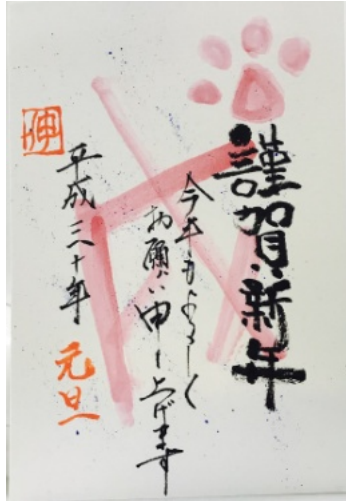 謹賀新年
今年もよろしく
お願い申し上げます
平成三十年
元旦
戌